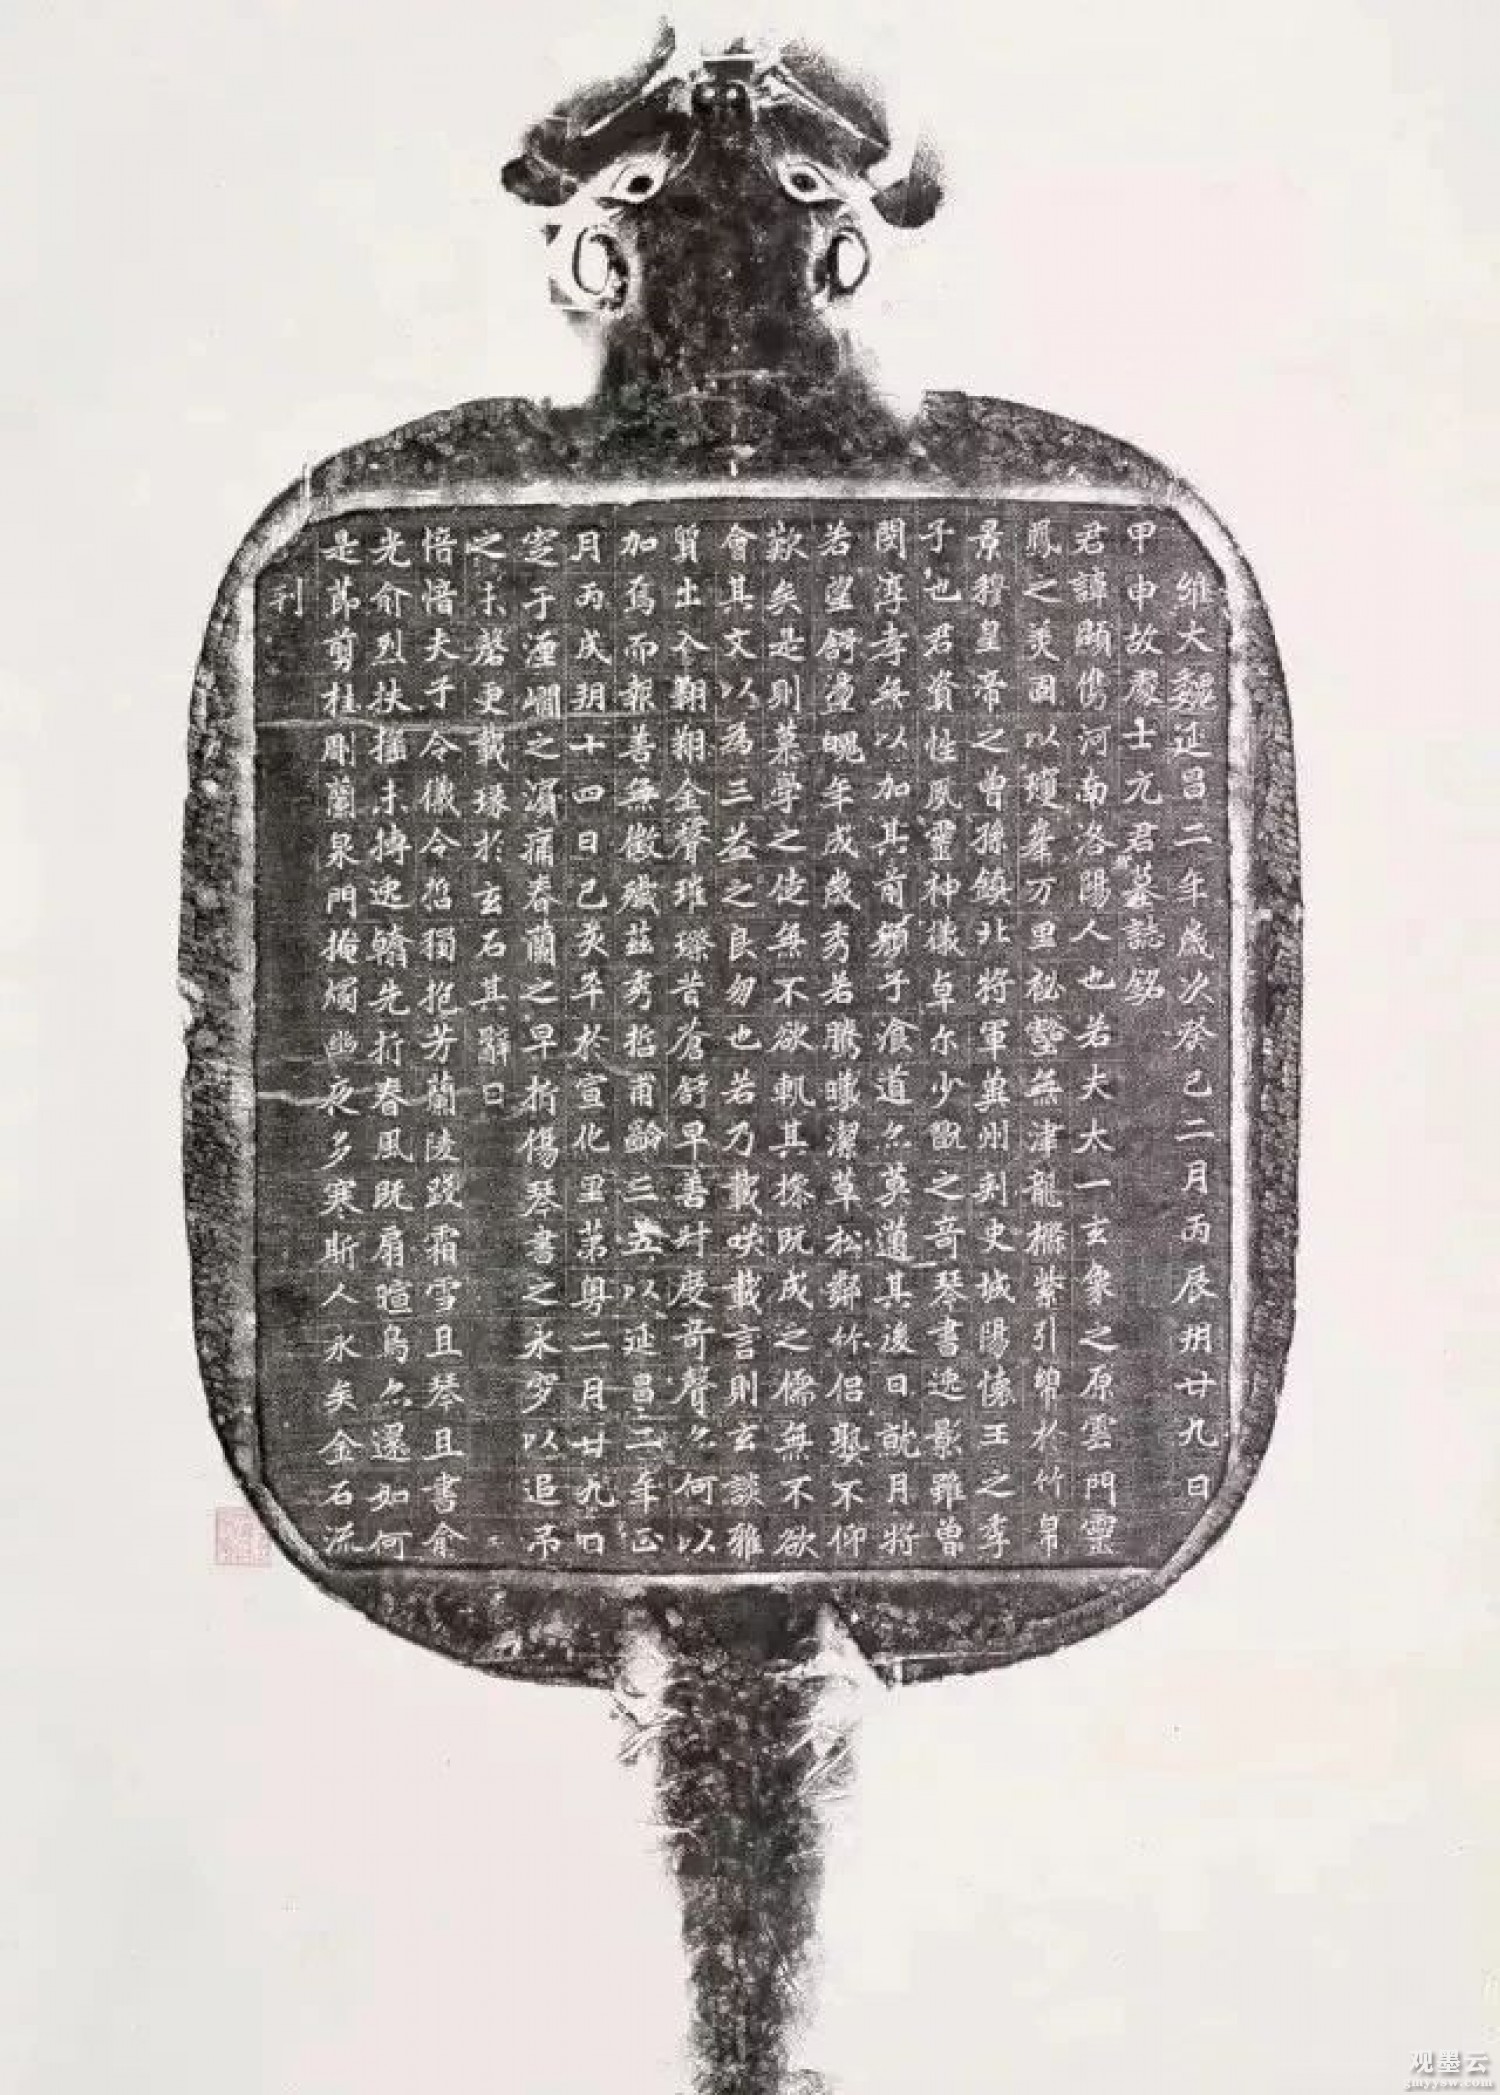 維大魏延昌二年歲次癸巳二月丙辰朔廿九日
甲申故處士元君墓誌銘
君諱顯儁河南洛陽人也若夫太一玄象之原雲門靈
鳳之美固以瓊峯万里秘壑無津龍檦紫引綿於竹帛
景穆皇帝之曾孫鎮北將軍兾州刾史城陽懷王之季
子也君資性夙靈神儀卓尔少翫之奇琴書逸影雖曾
閔淳孝無以加其前顏子湌道亦莫邁其後日就月將
若望舒盪魄年成歲秀若騰曦潔草松鄰竹侶熟不仰
歎矣是則慕學之徒無不欲軌其操既成之儒無不欲
會其文以為三益之良朋也若乃載咲載言則玄談雅
質出入翱翔金聲璀璨昔蒼舒早善叶慶奇聲亦何以
加焉而報善無徵殲茲秀哲甫齡三五以延昌二年正
月丙戌朔十四日己亥卒於宣化里第粤二月廿九日
窆于湹㵎之濱痛春蘭之早折傷琴書之永穸以追吊
之未磬更載琭於玄石其辭曰
愔愔夫子令儀令哲獨抱芳蘭陵踐霜雪且琴且書俞
光俞烈扶搖未摶逸轡先折春風既扇暄鳥亦還如何
是節剪桂彫蘭泉門掩燭幽夜多寒斯人永矣金石流
刊
观墨云
gmyyaw.com